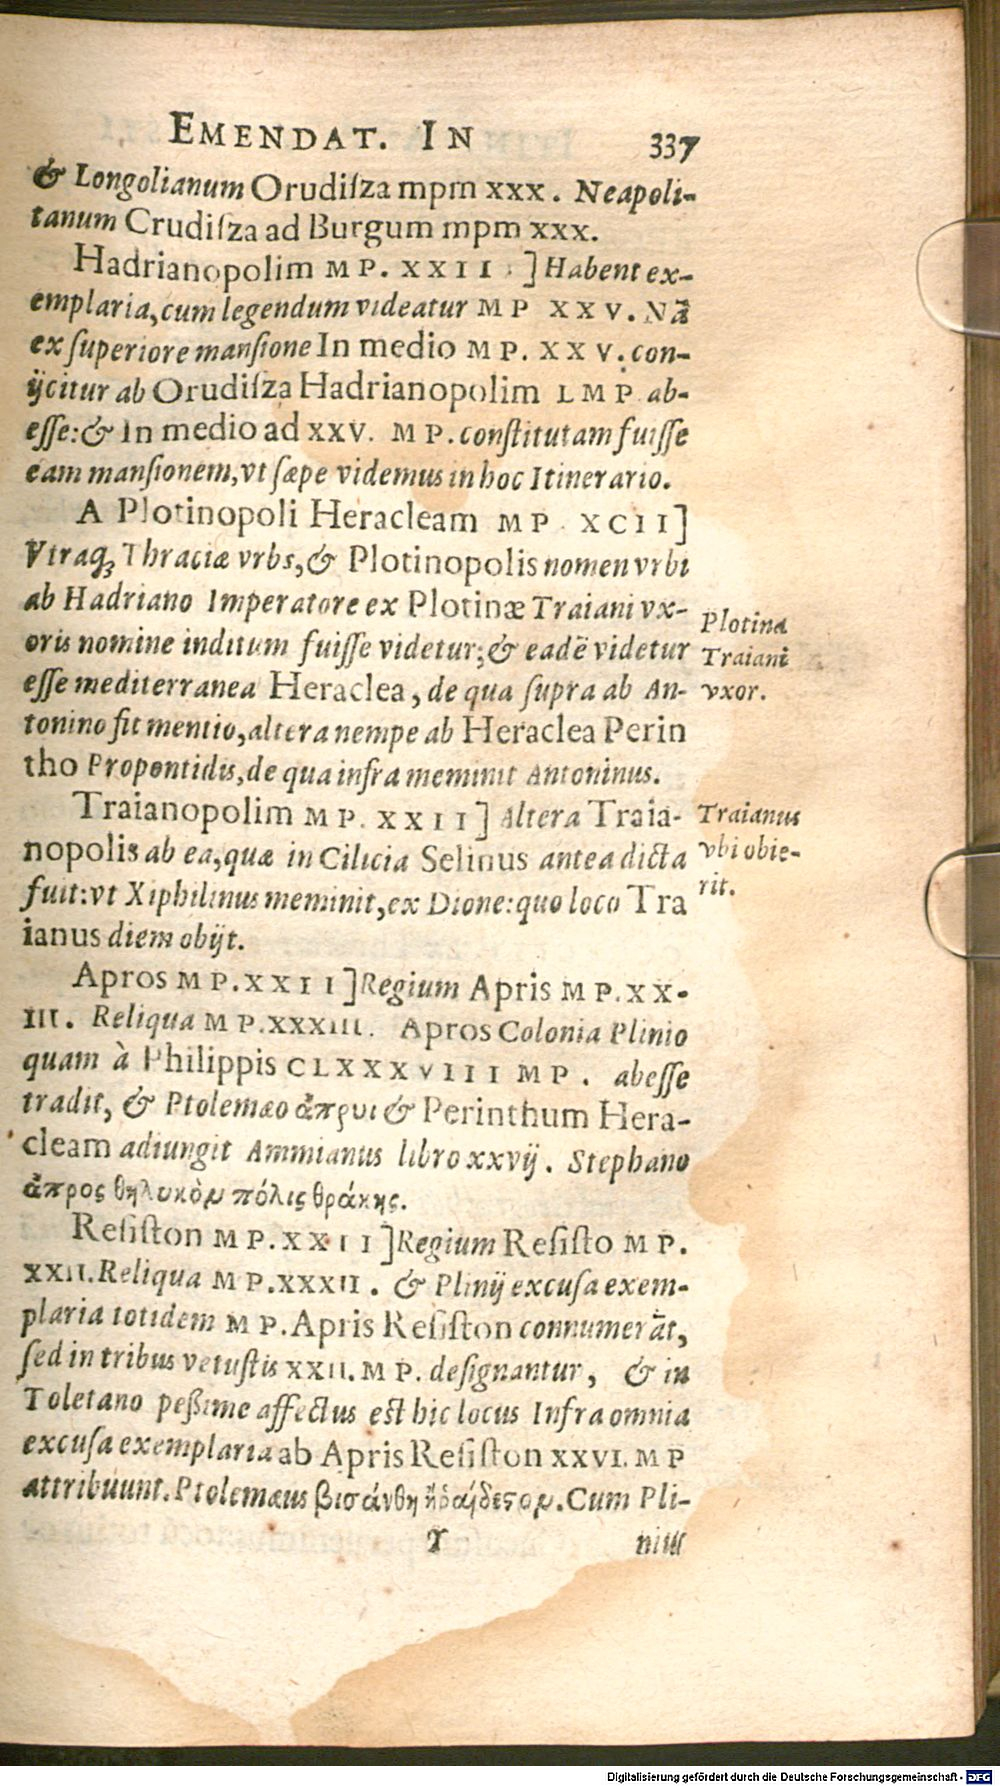 EMENDAT. IN 337
& Longolianum Orudiſza mpm XXX. Neapoli-
tanum Crudiſza ad Burgum mpm XXX.
Hadrianopolim MP. XXII.] Habent ex-
emplaria, cum legendum videatur MP XXV. Nā
ex ſuperiore manſione In medio MP. XXV. con-
ijcitur ab Orudiſza Hadrianopolim LMP ab-
eſſe: & In medio ad XXV. MP. conſtitutam fuiſſe
eam manſionem, vt ſæpe videmus in hoc Itinerario.
A Plotinopoli Heracleam MP. XCII]
Vtraq́ꝫ Thraciæ vrbs, & Plotinopolis nomen vrbi
ab Hadriano Imperatore ex Plotinæ Traiani vx-
oris nomine inditum fuiſſe videtur; & eadē videtur
eſſe mediterranea Heraclea, de qua ſupra ab An-
tonino fit mentio, altera nempe ab Heraclea Perin
tho Propontidis, de qua infra meminit Antoninus.
Plotina
Traiani
vxor.
Traianopolim MP. XXII] Altera Traia-
nopolis ab ea, quæ in Cilicia Selinus antea dicta
fuit: vt Xiphilinus meminit, ex Dione: quo loco Tra
ianus diem obijt.
Traianus
vbi obie-
rit.
Apros MP. XXII] Regium Apris MP. XX-
III. Reliqua MP. XXXIII. Apros Colonia Plinio
quam à Philippis CLXXXVIII MP. abeſſe
tradit, & Ptolemæo ἄπροι & Perinthum Hera-
cleam adiungit Ammianus libro xxvij. Stephano
ἄπρος θηλυκὸν πόλις θράκης.
Reſiſton MP. XXII] Regium Reſiſto MP.
XXII. Reliqua MP. XXXII. & Plinij excuſa exem-
plaria totidem MP. Apris Reſiſton connumerāt,
ſed in tribus vetuſtis XXII. MP. deſignantur, & in
Toletano peßime affectus eſt hic locus Infra omnia
excuſa exemplaria ab Apris Reſiſton XXVI. MP
attribuunt. Ptolemæus βισάνθη ἢ ῥαίδεστον. Cum Pli-
Y nius
Digitalisierung gefördert durch die Deutsche Forschungsgemeinschaft - DFG